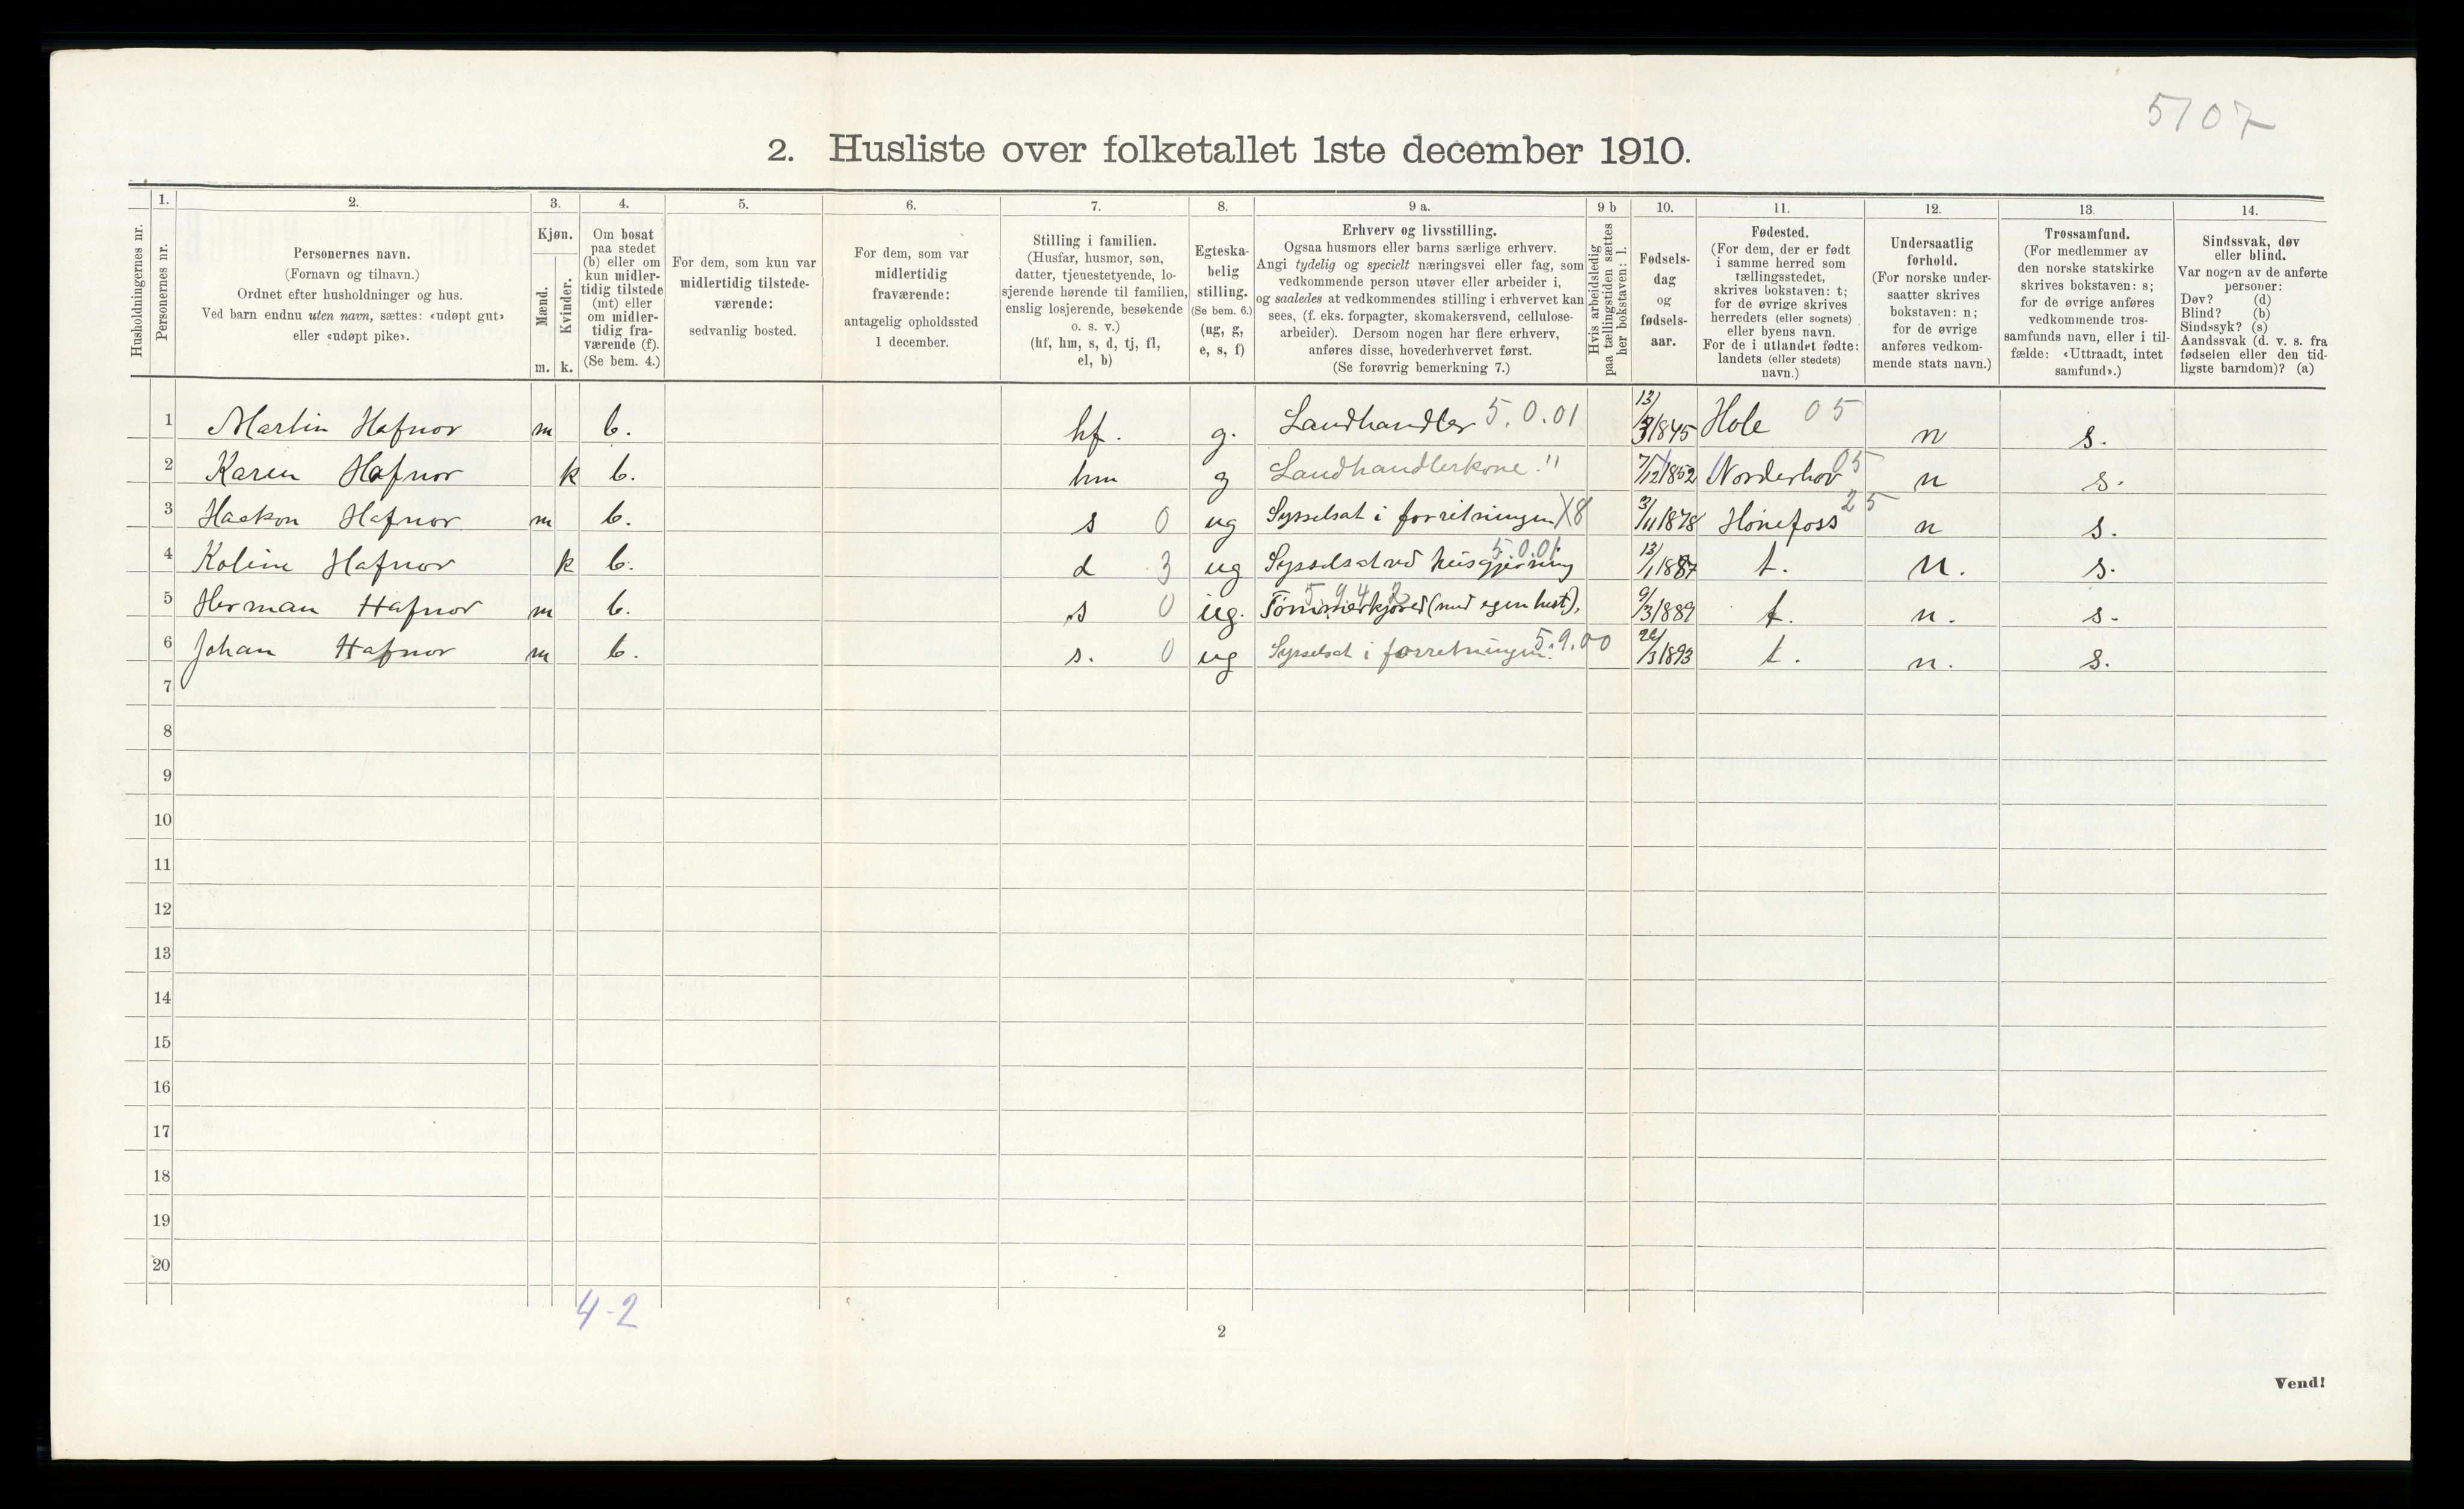 5107
2. Husliste over folketallet 1ste december 1910.
Husholdningernes nr.
1.
Personernes nr.
2.
Personernes navn.
(Fornavn og tilnavn.)
Ordnet efter husholdninger og hus.
Ved barn endnu uten navn, sættes: «udøpt gut»
eller «udøpt pike».
3.
Kjøn.
Mænd.
Kvinder.
m.
k.
4.
Om bosat
paa stedet
(b) eller om
kun midler-
tidig tilstede
(mt) eller
om midler-
tidig fra-
værende (f).
(Se bem. 4.)
5.
For dem, som kun var
midlertidig tilstede-
værende:
sedvanlig bosted.
6.
For dem, som var
midlertidig
fraværende:
antagelig opholdssted
1 december.
7.
Stilling i familien.
(Husfar, husmor, søn,
datter, tjenestetyende, lo-
sjerende hørende til familien,
enslig losjerende, besøkende
o. s. v.)
(hf, hm, s, d, tj, fl,
el, b)
8.
Egteska-
belig
stilling.
(Se bem. 6.)
(ug, g,
e, s, f)
9 a.
Erhverv og livsstilling.
Ogsaa husmors eller barns særlige erhverv.
Angi tydelig og specielt næringsvei eller fag, som
vedkommende person utøver eller arbeider i,
og saaledes at vedkommendes stilling i erhvervet kan
sees, (f. eks. forpagter, skomakersvend, cellulose-
arbeider). Dersom nogen har flere erhverv,
anføres disse, hovederhvervet først.
(Se forøvrig bemerkning 7.)
9 b
Hvis arbeidsledig
paa tællingstiden sættes
her bokstaven: l.
10.
Fødsels-
dag
og
fødsels-
aar.
11.
Fødested.
(For dem, der er født
i samme herred som
tællingsstedet,
skrives bokstaven: t;
for de øvrige skrives
herredets (eller sognets)
eller byens navn.
For de i utlandet fødte:
landets (eller stedets)
navn.)
12.
Undersaatlig
forhold.
(For norske under-
saatter skrives
bokstaven: n;
for de øvrige
anføres vedkom-
mende stats navn.)
13.
Trossamfund.
(For medlemmer av
den norske statskirke
skrives bokstaven: s;
for de øvrige anføres
vedkommende tros-
samfunds navn, eller i til-
fælde: «Uttraadt, intet
samfund».)
14.
Sindssvak, døv
eller blind.
Var nogen av de anførte
personer:
Døv? (d)
Blind? (b)
Sindssyk? (s)
Aandssvak (d. v. s. fra
fødselen eller den tid-
ligste barndom)? (a)
1 Martin Hafnor m b. hf. g. Landhandler 5.0.01 1845 Hole 05 n s.
2 Karen Hafnor k b. hm g Landhandlerkone. " 7/12 1852 Norderhov 05 n s.
3 Haakon Hafnor m b. s 0 ug Sysselsat i forretningen X8 3/11 1878 Hønefoss 25 n s.
4 Koline Hafnor k b. d 3 ug Sysselsat ved husgjerning 5.0.01 13/1 1887 t. n. s.
5 Herman Hafnor m b. s 0 ug. Tømmerkjører (med egen hest). 5.94 2 9/3 1889 t. n. s.
6 Johan Hafnor m b. s. 0 ug Sysselsat i forretningen. 5.9.00 /3 1893 t. n. s.
7
8
9
10
11
12
13
14
15
16
17
18
19
20
4-2
2
Vend!